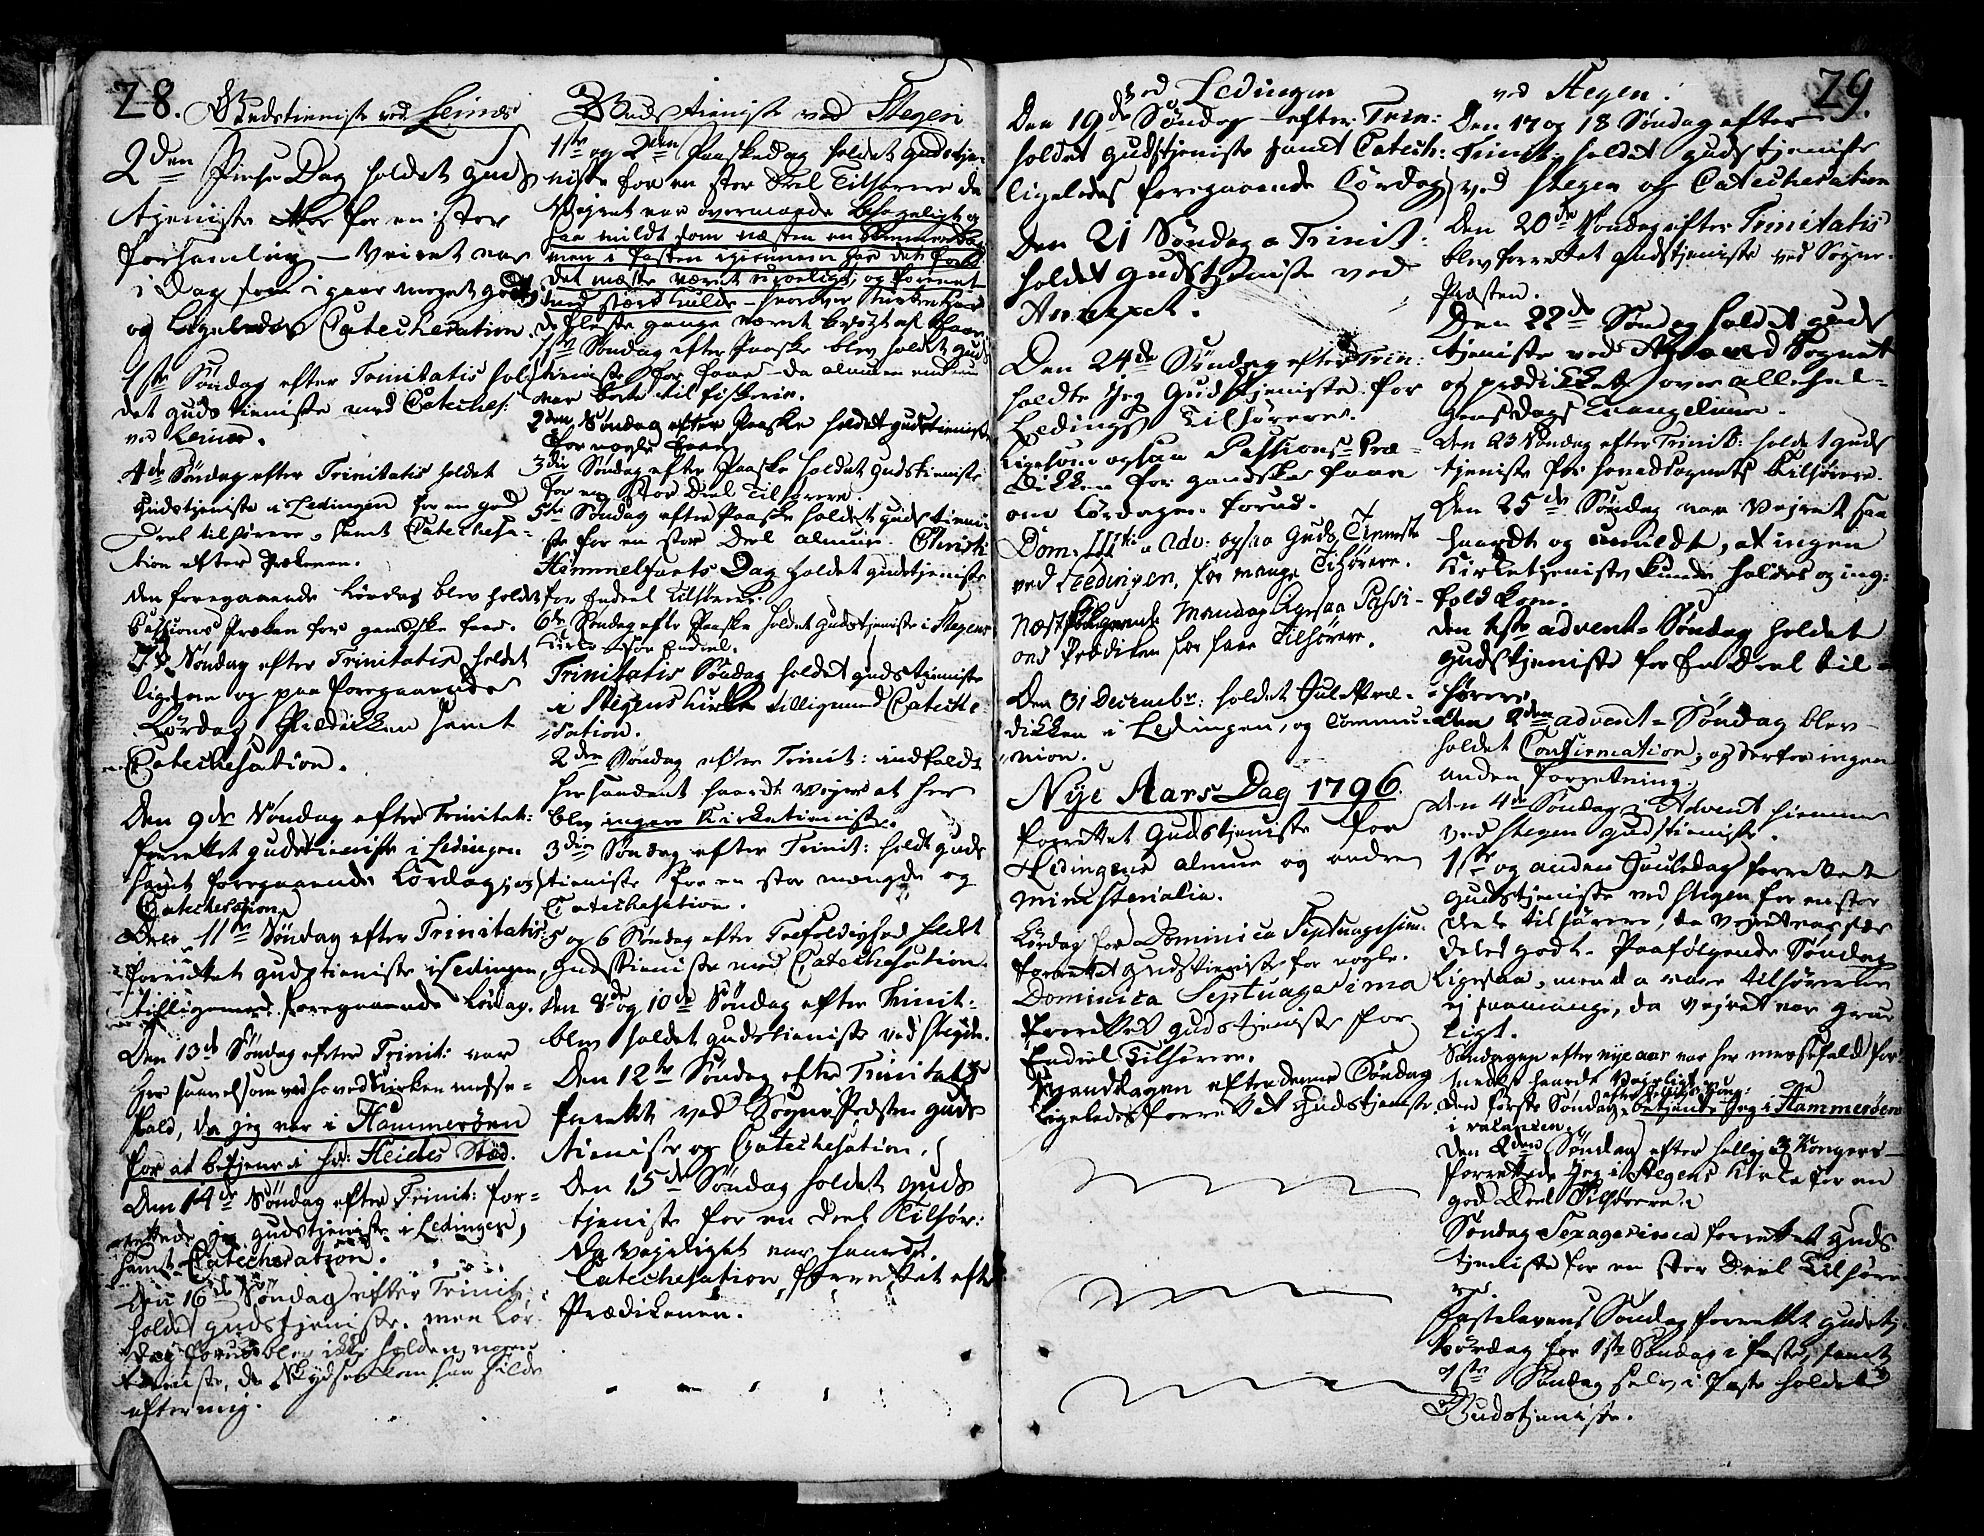 28.
Gudstieniste ved Leines
2den Pintse Dag holdet Guds
tjeniste for en stor
forsamling — Veiret var
i Dag som i gaar meget godt
og ligeledes Catechesation.
1ste Søndag efter Trinitatis hol-
det gudstieniste med Cateches:
ved Leines.
4de Søndag efter Trinitatis holdet
Gudstjeniste i Ledingen for en god
Deel tilhørere, samt Catechesa-
tion efter Prækenen.
den foregaaende Løverdag blev holdet
Passions Præken for gandske faae.
Søndag efter Trinitatis holdet
ligesom og paa foregaaende
Lørdag Prædicken samt
Catechesation.
Den 9de Søndag efter Trinitat:
forrettet gudstieniste i Ledingen
samt foregaaende Lørdag, og
Catechesation
Den 11te Søndag efter Trinitatis
forrettet gudstieniste i Ledingen
tilligemed foregaaende Lørdag.
Den 13de Søndag efter Trinit: var
her saavelsom ved hovedkirken messe-
fald, da jeg var i Hammerøen
for at betjene i hr: Heides Sted.
Den 14de Søndag efter Trinit: for-
rettede jeg gudstjeniste i Ledingen,
samt Catechesation.
Den 16de Søndag efter Trinit:
holdet gudstjeniste. men Lør-
dag forud blev ikke holden nogen
tjeniste, da Skydsen kom saa silde
efter mig.
Gudstieniste ved Stegen
1ste og 2den Paaskedag holdet gudstje-
niste for en stor Deel Tilhørere da
Vejret var overmaade behageligt og
saa mildt som næsten en Sommerdag
men i fasten igiennem har det for
det meste været uroeligt, og forenet
med stærk kulde — hvorover Kirken har
de fleste gange været besøgt af faae
1ste Søndag efter Paaske blev holdet guds
tieniste for faae — da almuen endnu
var borte til fiskerie.
2den Søndag efter Paaske holdet gudstieniste
for nogle faae
3die Søndag efter Paaske holdet gudstieniste
for en stor Deel Tilhørere.
5te Søndag efter Paaske holdet gudstieni-
ste for en stor Deel almue. Christi
Himmelfarts Dag holdet gudstjeniste
for Endeel Tilhørere.
6te Søndag efter Paaske holdet gudstjeniste i Stegens
Kirke for Endeel.
Trinitatis Søndag holdet gudstjeniste
i Stegens Kirke tilligemed Cateche-
sation.
2den Søndag efter Trinit: indfaldt
her saadant haardt Vejer at her
blev ingen Kirketieniste.
3die Søndag efter Trinit: holdt guds
tieniste for en stor mængde og
Catechesation.
5 og 6 Søndag efter Trefoldighed holdt
gudstieniste med Catechesation.
Den 8de og 10de Søndag efter Trinit:
blev holdet gudstieniste ved Stegen.
Den 12te Søndag efter Trinitatis
forrettet ved Sogne-Præsten guds
tieniste og Catechesation.
Den 15de Søndag holdet guds
tjeniste for en Deel Tilhør:
da vejerliget var haardt.
Catechesation forrettet efter
Prædikenen.
29.
ved Ledingen
Den 19de Søndag efter Trin:
holdet gudstjeniste samt Catech:
ligeledes foregaaende Lørdag
Den 21 Søndag a Trinit:
holdet gudstjeniste ved
Annexet.
Den 24de Søndag efter Trin:
holdte Jeg Gudstjeniste for
Ledings Tilhørere.
Ligesom ogsaa Passions-Præ-
dicken for gandske faae
om Lørdagen forud.
Dom: IIItia Adv: ogsaa Guds Tieneste
ved Leedingen, for mange Tilhørere.
Næstfølgende Mandag ligesaa Passi-
ons Prædiken for faae Tilhørere.
Den 31 Decembr: holdet Jule Præ-
dicken i Ledingen, og Commu-
nion.
Nye Aars Dag 1796.
forrettet Gudstjeniste for
Ledingens almue og andre
ministerialia.
Lørdag for Dominica Septuagesim:
forrettet gudstieniste for nogle.
Dominica Septuagesima
forrettet gudstjeniste for
Endeel Tilhørere.
Mandagen efter denne Søndag
ligeledes forrettet gudstjeneste
ved Stegen.
Den 17 og 18 Søndag efter
Trinit: holdet gudstjeniste
ved Stegen og Catechesation
Den 20de Søndag efter Trinitatis
blev forrettet gudstjeniste ved Sogne-
Præsten.
Den 22de Søndag holdet guds
tjeniste ved Hovedsognet
og prædicket over allehel-
gensdags Evangelium.
Den 23 Søndag efter Trinit: holdet guds
tjeniste for hovedsognets tilhørere.
Den 25de Søndag var Vejret saa
haardt og umildt, at ingen
Kirketjeniste kunde holdes og ing:
folk kom.
Den 1ste advent-Søndag holdet
gudstjeniste for En Deel til-
hørere
Den 2den advent-Søndag blev
holdet Confirmation; og derfor ingen
anden forretning
Den 4de Søndag i Advent hiemme
ved Stegen gudstieniste.
1ste og anden Juuledag forrettet
gudstjeniste ved Stegen for en stor
Deel tilhørere, da Vejret var sær
deles godt. Paafølgende Søndag
ligesaa, men da vare tilhørerne
ej saa mange, da Vejret var gruе
ligt.
Søndagen efter nye aar var her messefald for-
medelst haardt Vejerligt
Den første Søndag efter hellig 3 Kong: betjente jeg i Hammerøen
i vakancen
Den 2den Søndag efter hellig 3 Konger
forrettede Jeg i Stegens Kirke for en
god Deel Tilhørere.
Søndag Sexagesima forrettet guds
tjeniste for en stor Deel Tilhøre
re.
Fastelavens Søndag forrettet gudstj:
Lørdag for 1ste Søndag i faste, samt
1ste Søndag selv i Faste holdet
Gudstjeniste.